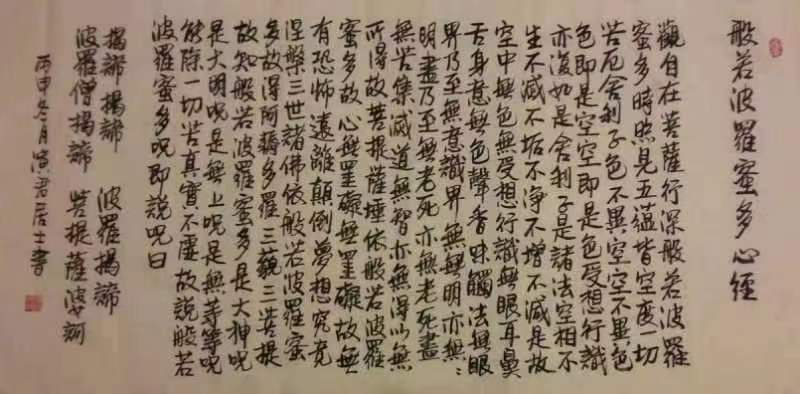 般若波羅蜜多心經
觀自在菩薩行深般若波羅
蜜多時照見五蘊皆空度一切
苦厄舍利子色不異空空不異色
色即是空空即是色受想行識
亦復如是舍利子是諸法空相不
生不滅不垢不淨不增不減是故
空中無色無受想行識無眼耳鼻
舌身意無色聲香味觸法無眼
界乃至無意識界無無明亦無〻
明盡乃至無老死亦無老死盡
無苦集滅道無智亦無得以無
所得故菩提薩埵依般若波羅
蜜多故心無罣礙無罣礙故無
有恐怖遠離顛倒夢想究竟
涅槃三世諸佛依般若波羅蜜
多故得阿耨多羅三藐三菩提
故知般若波羅蜜多是大神呪
是大明呪是無上呪是無等等呪
能除一切苦真實不虛故說般若
波羅蜜多呪即說呪曰
揭諦揭諦 波羅揭諦
波羅僧揭諦 菩提薩婆訶
丙申冬月寅君居士書